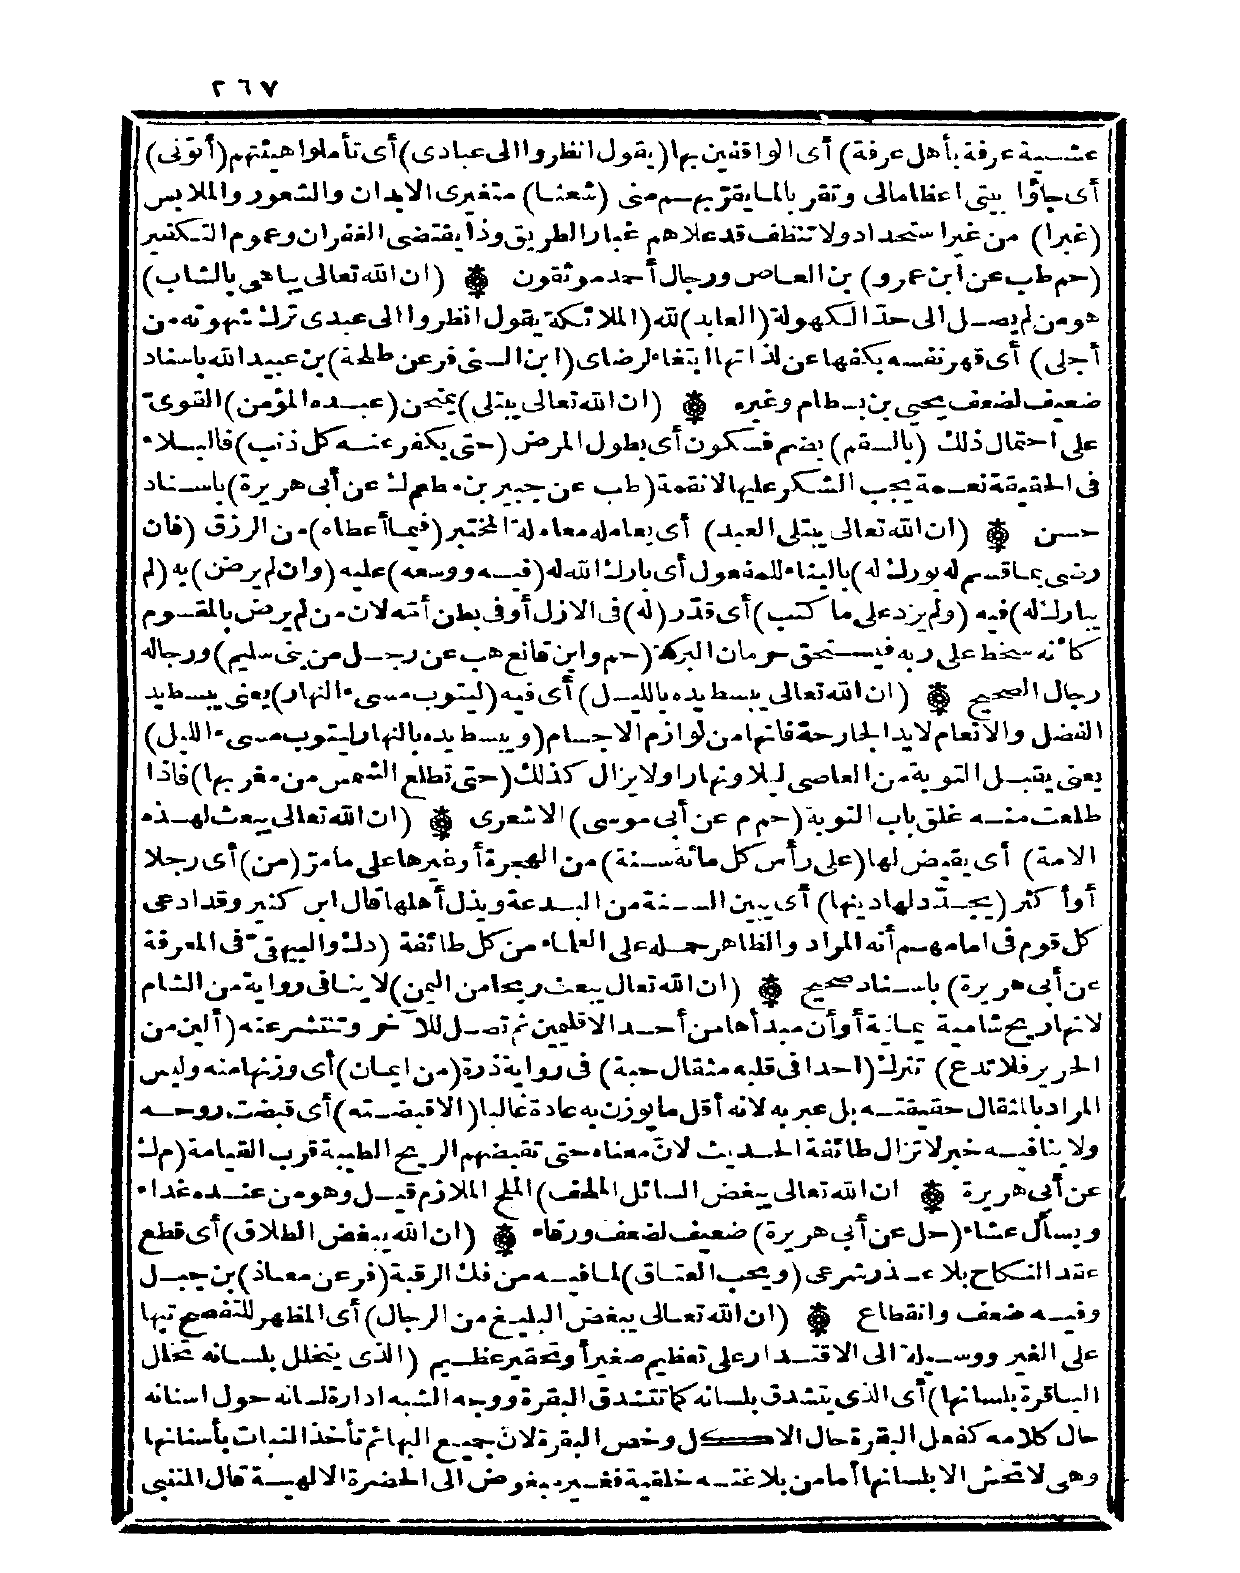 ٢٦٧
عشية عرفة بأهل عرفة) أى الواقفين بها (يقول انظروا الى عبادى) أى تأملوا هيئتهم (أتونى)
أى جاؤا بيتى اعظاما لى وتقربا لما يقربهم منى (شعثا) متغيرى الابدان والشعور والملابس
(غبرا) من غير استحداد ولا تنظف قد علاهم غبار الطريق وذا يقتضى الغفران وعموم التكفير
(حم طب عن ابن عمرو) بن العاص ورجال أحمد موثقون ۞ (ان الله تعالى يباهى بالشاب)
هو من لم يصل الى حد الكهولة (العابد) لله (الملائكة يقول انظروا الى عبدى ترك شهوته من
أجلى) أى قهر نفسه بكفها عن لذاتها ابتغاء لرضاى (ابن السنى فر عن طلحة) بن عبيد الله باسناد
ضعيف لضعف يحيى بن بسطام وغيره ۞ (ان الله تعالى يبتلى) يمتحن (عبده المؤمن) القوىّ
على احتمال ذلك (بالسقم) بضم فسكون أى بطول المرض (حتى يكفر عنه كل ذنب) فالبلاء
فى الحقيقة نعمة يجب الشكر عليها لا نقمة (طب عن جبير بن مطعم ك عن أبى هريرة) باسناد
حسن ۞ (ان الله تعالى يبتلى العبد) أى يعامله معاملة المختبر (فيما أعطاه) من الرزق (فان
رضى بما قسم له بورك له) بالبناء للمفعول أى بارك الله له (فيه ووسعه) عليه (وان لم يرض) به (لم
يبارك له) فيه (ولم يزد على ما كتب) أى قدّر (له) فى الازل أو فى بطن أمّه لان من لم يرض بالمقسوم
كأنه سخط على ربه فيستحق حرمان البركة (حم وابن قانع هب عن رجل من بنى سليم) ورجاله
رجال الصحيح ۞ (ان الله تعالى يبسط يده بالليل) أى فيه (ليتوب مسىء النهار) يعنى يبسط يد
الفضل والانعام لا يد الجارحة فانها من لوازم الاجسام (ويبسط يده بالنهار ليتوب مسىء الليل)
يعنى يقبل التوبة من العاصى ليلا ونهارا ولا يزال كذلك (حتى تطلع الشمس من مغربها) فاذا
طلعت منه غلق باب التوبة (حم م عن أبى موسى) الاشعرى ۞ (ان الله تعالى يبعث لهذه
الامة) أى يقيض لها (على رأس كل مائة سنة) من الهجرة أو غيرها على مامرّ (من) أى رجلا
أو أكثر (يجدّد لها دينها) أى يبين السنة من البدعة ويذل أهلها قال ابن كثير وقد ادعى
كل قوم فى امامهم أنه المراد والظاهر حمله على العلماء من كل طائفة (د ك والبيهقىّ فى المعرفة
عن أبى هريرة) باسناد صحيح ۞ (ان الله تعالى يبعث ريحا من اليمن) لا ينافى رواية من الشام
لانها ريح شامية يمانية أو أن مبدأها من أحد الاقليمين ثم تصل للآخر وتنتشر عنه (ألين من
الحرير فلا تدع) تترك (احدا فى قلبه مثقال حبة) فى رواية ذرة (من ايمان) أى وزنها منه وليس
المراد بالمثقال حقيقته بل عبر به لانه أقل ما يوزن به عادة غالبا (الا قبضته) أى قبضت روحه
ولا ينافيه خبر لا تزال طائفة الحديث لانّ معناه حتى تقبضهم الريح الطيبة قرب القيامة (م ك
عن أبى هريرة ۞ ان الله تعالى يبغض السائل الملحف) الملح الملازم قيل وهو من عنده غداء
ويسأل عشاء (حل عن أبى هريرة) ضعيف لضعف ورقاء ۞ (ان الله يبغض الطلاق) أى قطع
عقد النكاح بلا عذر شرعى (ويحب العتاق) لما فيه من فك الرقبة (فر عن معاذ) بن جبل
وفيه ضعف وانقطاع ۞ (ان الله تعالى يبغض البليغ من الرجال) أى المظهر للتفصح تيها
على الغير ووسيلة الى الاقتدار على تعظيم صغير أو تحقير عظيم (الذى يتخلل بلسانه تخلل
الباقرة بلسانها) أى الذى يتشدق بلسانه كما تتشدق البقرة ووجه الشبه ادارة لسانه حول اسنانه
حال كلامه كفعل البقرة حال الاكل وخص البقرة لانّ جميع البهائم تأخذ النبات بأسنانها
وهى لا تحش الا بلسانها أما من بلاغته خلقية فغير مبغوض الى الحضرة الالهية قال المتنبى